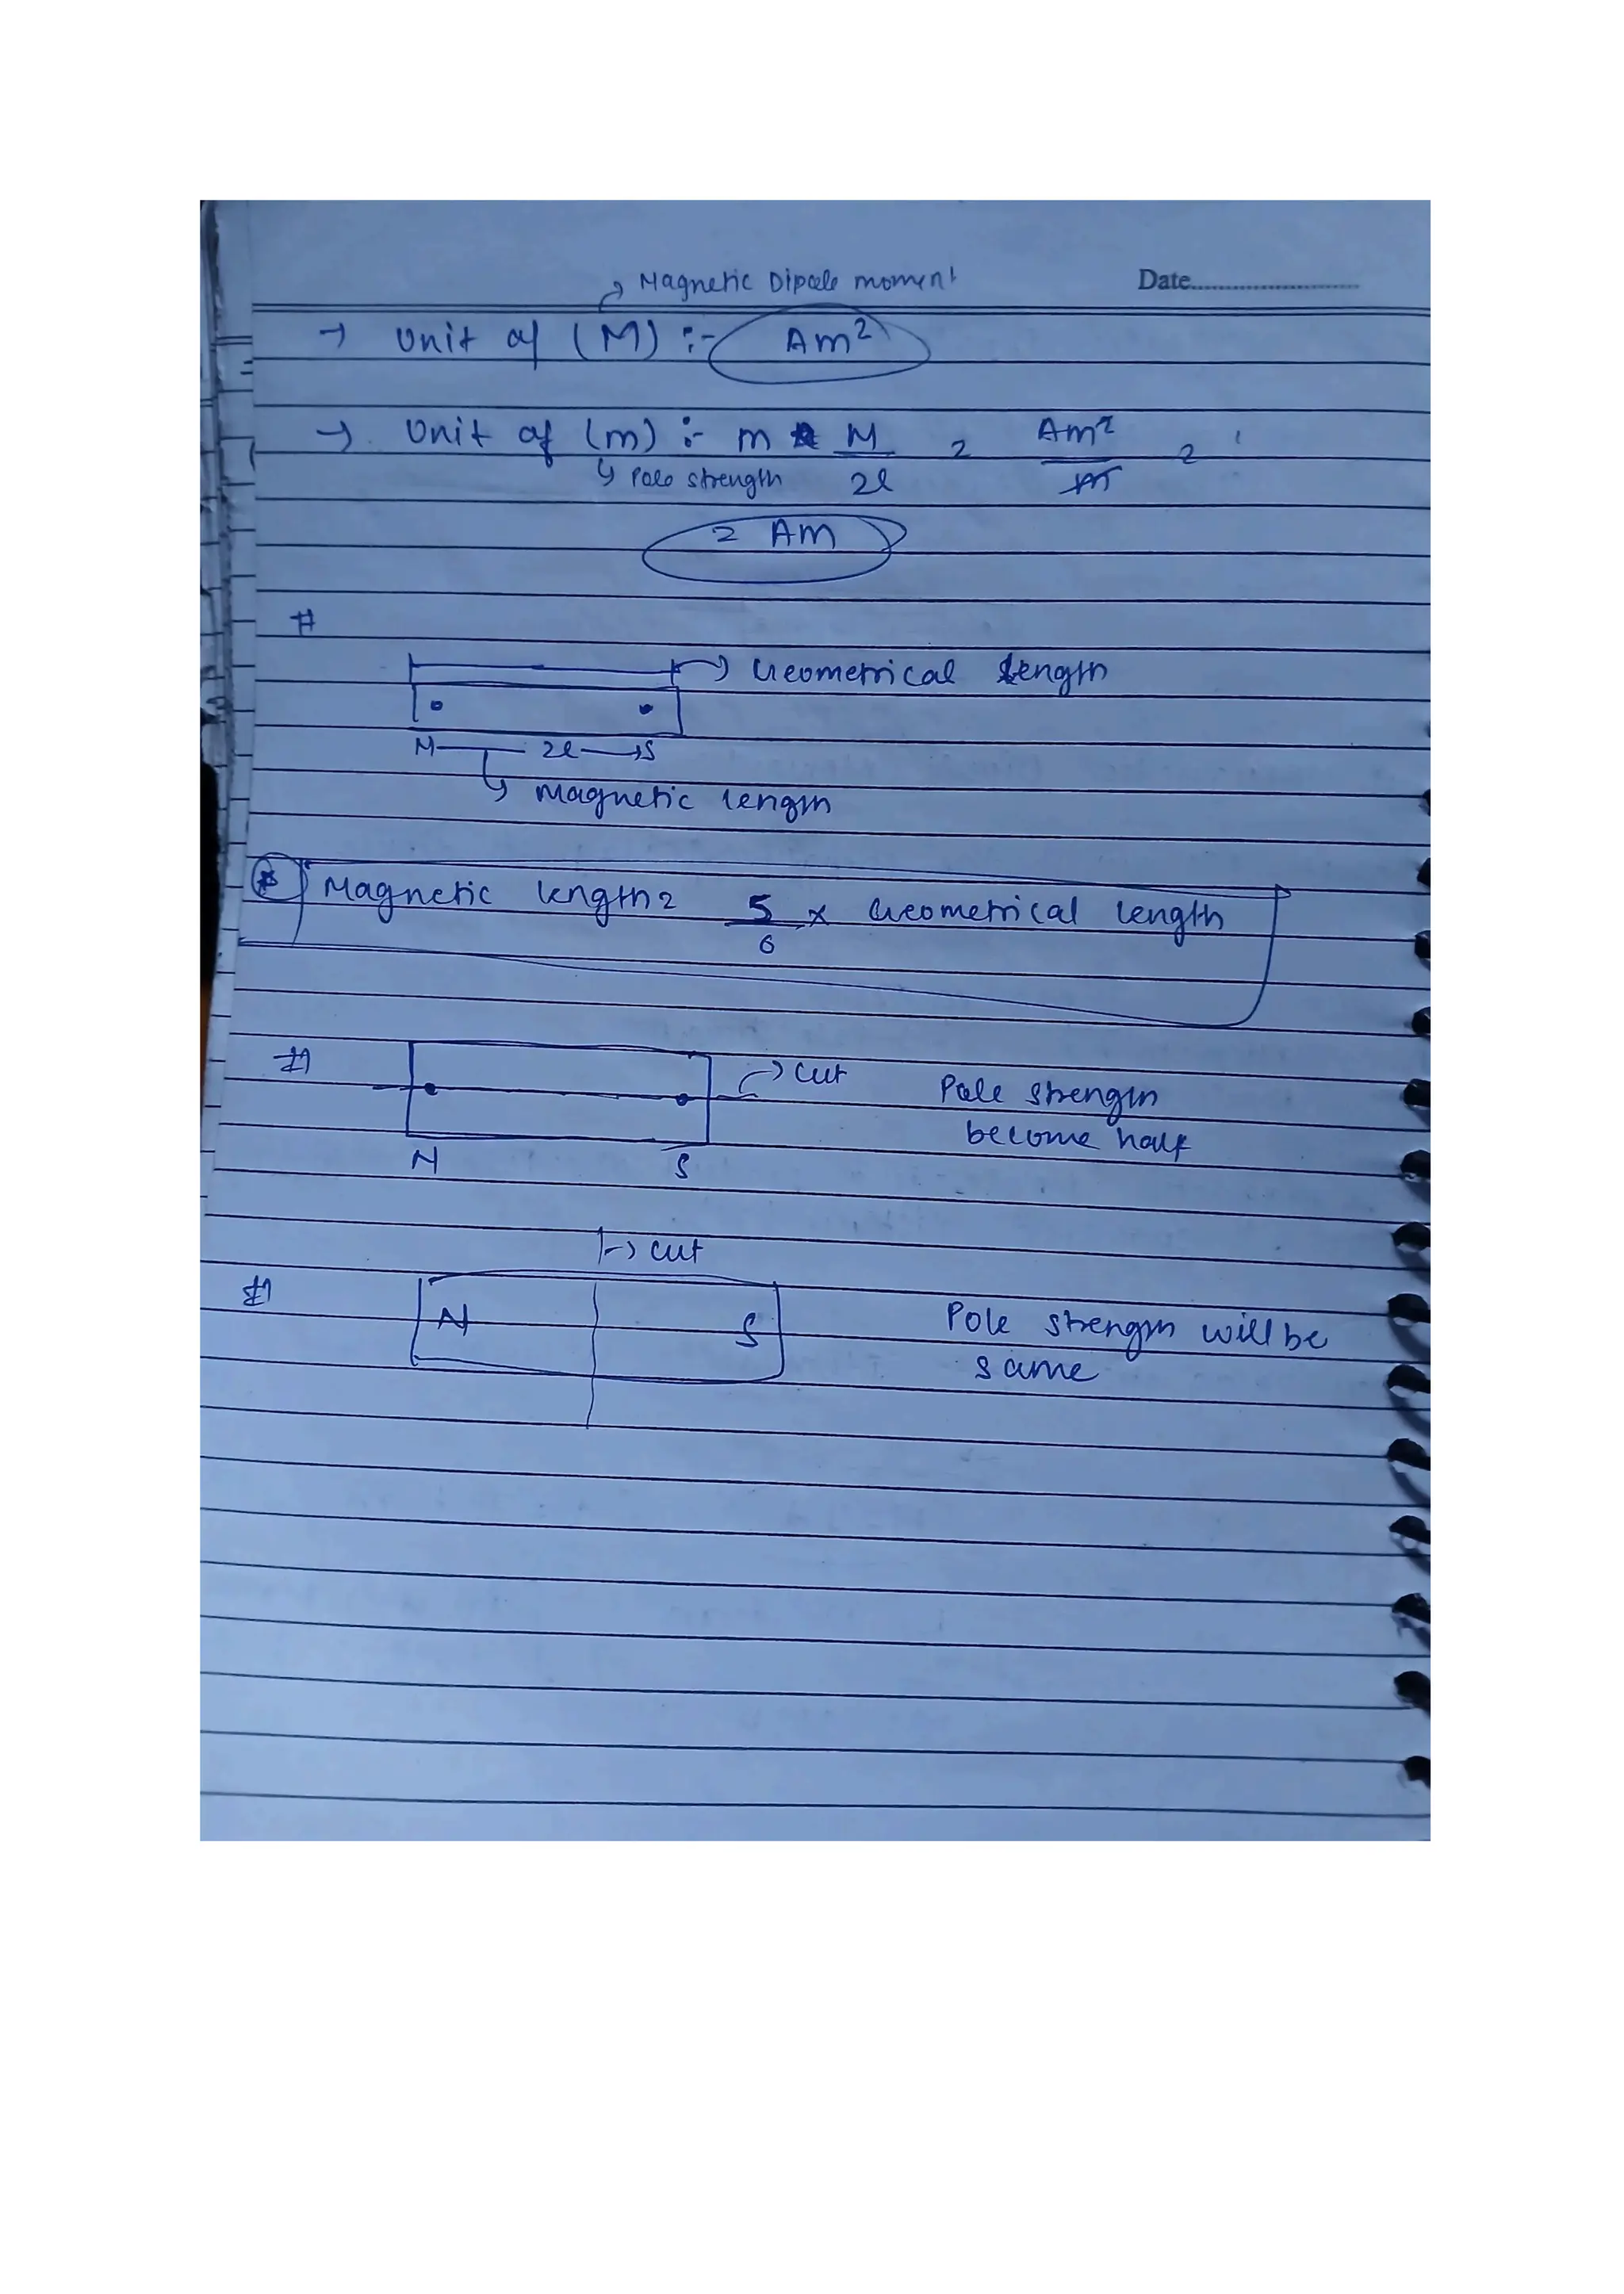 → Magnetic Dipole moment
Date
→ Unit of (M) :- Am²
→ Unit of (m) :- m = M/2l = Am²/m =
↳ Pole strength
= Am
#
→ Geometrical length
N 2l → S
↳ magnetic length
* Magnetic length = 5/6 × Geometrical length
#
→ cut
Pole strength
become half
N S
→ cut
#
N S
Pole strength will be
same